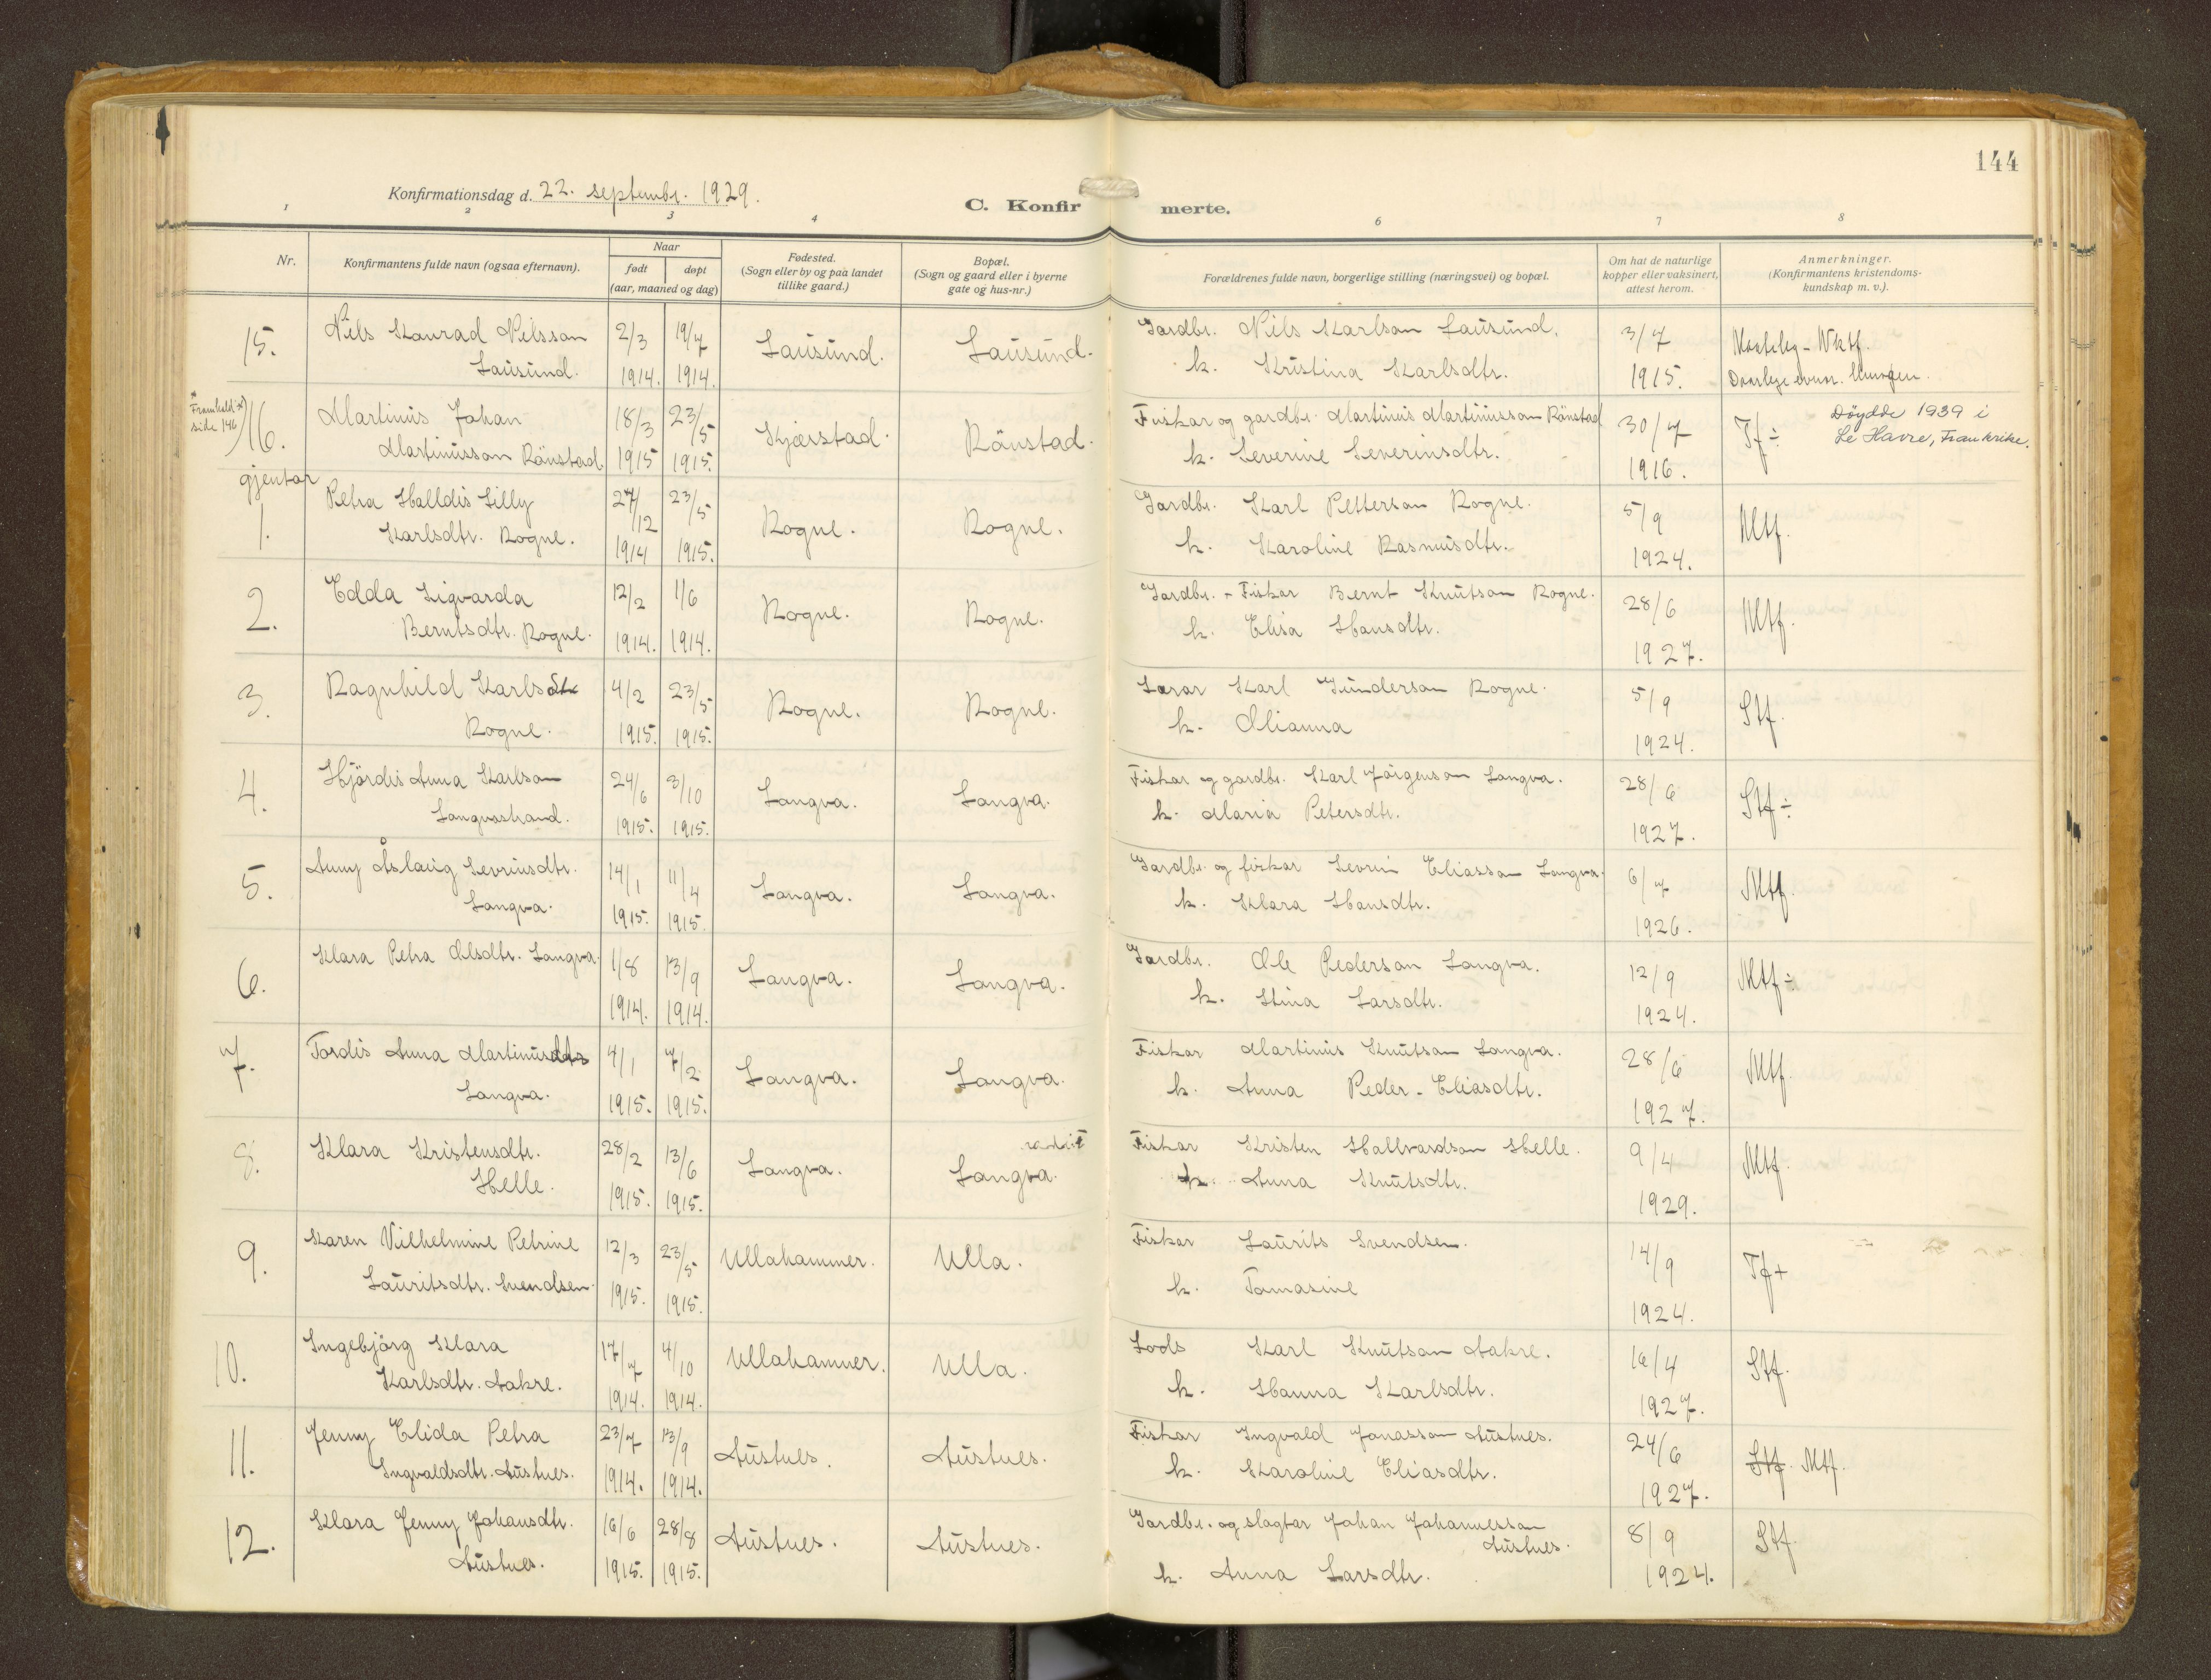 144
Konfirmationsdag d. 22. septembr. 1929.
C. Konfirmerte.
1 2 3 4 6 7 8
Nr.
Konfirmantens fulde navn (ogsaa efternavn).
Naar
født døpt
(aar, maaned og dag)
Fødested.
(Sogn eller by og paa landet
tillike gaard.)
Bopæl.
(Sogn og gaard eller i byerne
gate og hus-nr.)
Forældrenes fulde navn, borgerlige stilling (næringsvei) og bopæl.
Om hat de naturlige
kopper eller vaksinert,
attest herom.
Anmerkninger.
(Konfirmantens kristendoms-
kundskap m. v.).
15. Nils Konrad Nilsson 2/3 19/7 Lausund. Lausund. Gardbr. Nils Karlson Lausund. 3/7
Lausund. 1914. 1914. k. Kristina Karlsdtr. 1915.
Framhald
side 146
16. Martinus Johan 18/3 23/5 Kjærstad. Rönstad. Fiskar og gardbr. Martinus Martinusson Rönstad 30/7 Tf÷ Döydde 1939 i
Le Havre, Frankrike.
Martinusson Rönstad 1915 1915. k. Severine Severinsdtr. 1916.
gjentor
1. Petra Halldis Lilly 27/12 23/5 Rogne. Rogne. Gardbr. Karl Petterson Rogne. 5/9 Mtf.
Karlsdtr. Rogne. 1914 1915. k. Karoline Rasmusdtr. 1924.
2. Edda Sigvarda 12/2 1/6 Rogne. Rogne. Gardbr. - Fiskar Bernt Knutson Rogne. 28/6 Mtf.
Berntsdtr. Rogne. 1914. 1914. k. Elisa Hansdtr. 1927.
3. Ragnhild Karlsdtr 4/2 23/5 Rogne. Rogne. Lærar Karl Gunderson Rogne. 5/9 Stf.
Rogne. 1915. 1915. k. Olianna 1924.
4. Hjördis Anna Karlson 24/6 3/10 Langva. Langva. Fiskar og gardbr. Karl Jörgenson Langva. 28/6 Stf÷
Langvastrand. 1915. 1915. k. Maria Petersdtr. 1927.
5. Anny Åslaug Sevrinsdtr. 14/1 11/4 Langva. Langva. Gardbr. og fiskar Sevrin Eliasson Langva. 6/7 Mtf.
Langva. 1915. 1915. k. Klara Hansdtr. 1926.
6. Klara Petra Olsdtr. Langva. 1/8 13/9 Langva. Langva. Gardbr. Ole Pederson Langva. 12/9 Mtf÷
1914. 1914. k. Stina Larsdtr. 1924.
7. Tordis Anna Martinusdtr 4/1 7/2 Langva. Langva. Fiskar Martinus Knutson Langva. 28/6 Mtf.
Langva. 1915. 1915. k. Anna Peder-Eliasdtr. 1927.
8. Klara Kristensdtr. 28/2 13/6 Langva. Langva. Fiskar Kristen Hallvardson Helle. 9/4 Mtf.
Helle. 1915. 1915. k. Anna Knutsdtr. 1929.
9. Karen Vilhelmine Petrine 12/3 23/5 Ullahammer. Ulla. Fiskar Laurits Svendsen. 14/9 Tf+
Lauritsdtr. Svendsen. 1915. 1915. k. Tomasine 1924.
10. Ingebjörg Klara 17/7 4/10 Ullahammer. Ulla. Lods Karl Knutson Aakre. 16/4 Stf.
Karlsdtr. Aakre. 1914. 1914. k. Hanna Karlsdtr. 1927.
11. Jenny Elida Petra 23/7 13/9 Austnes. Austnes. Fiskar Ingvald Jonasson Austnes. 24/6 Stf. Mtf.
Ingvaldsdtr. Austnes. 1914. 1914. k. Karoline Eliasdtr. 1927.
12. Klara Jenny Johansdtr. 16/6 28/8 Austnes. Austnes. Gardbr. og slagtar Johan Johannesson 8/9 Stf.
Austnes. 1915. 1915. Austnes.
k. Anna Larsdtr. 1924.